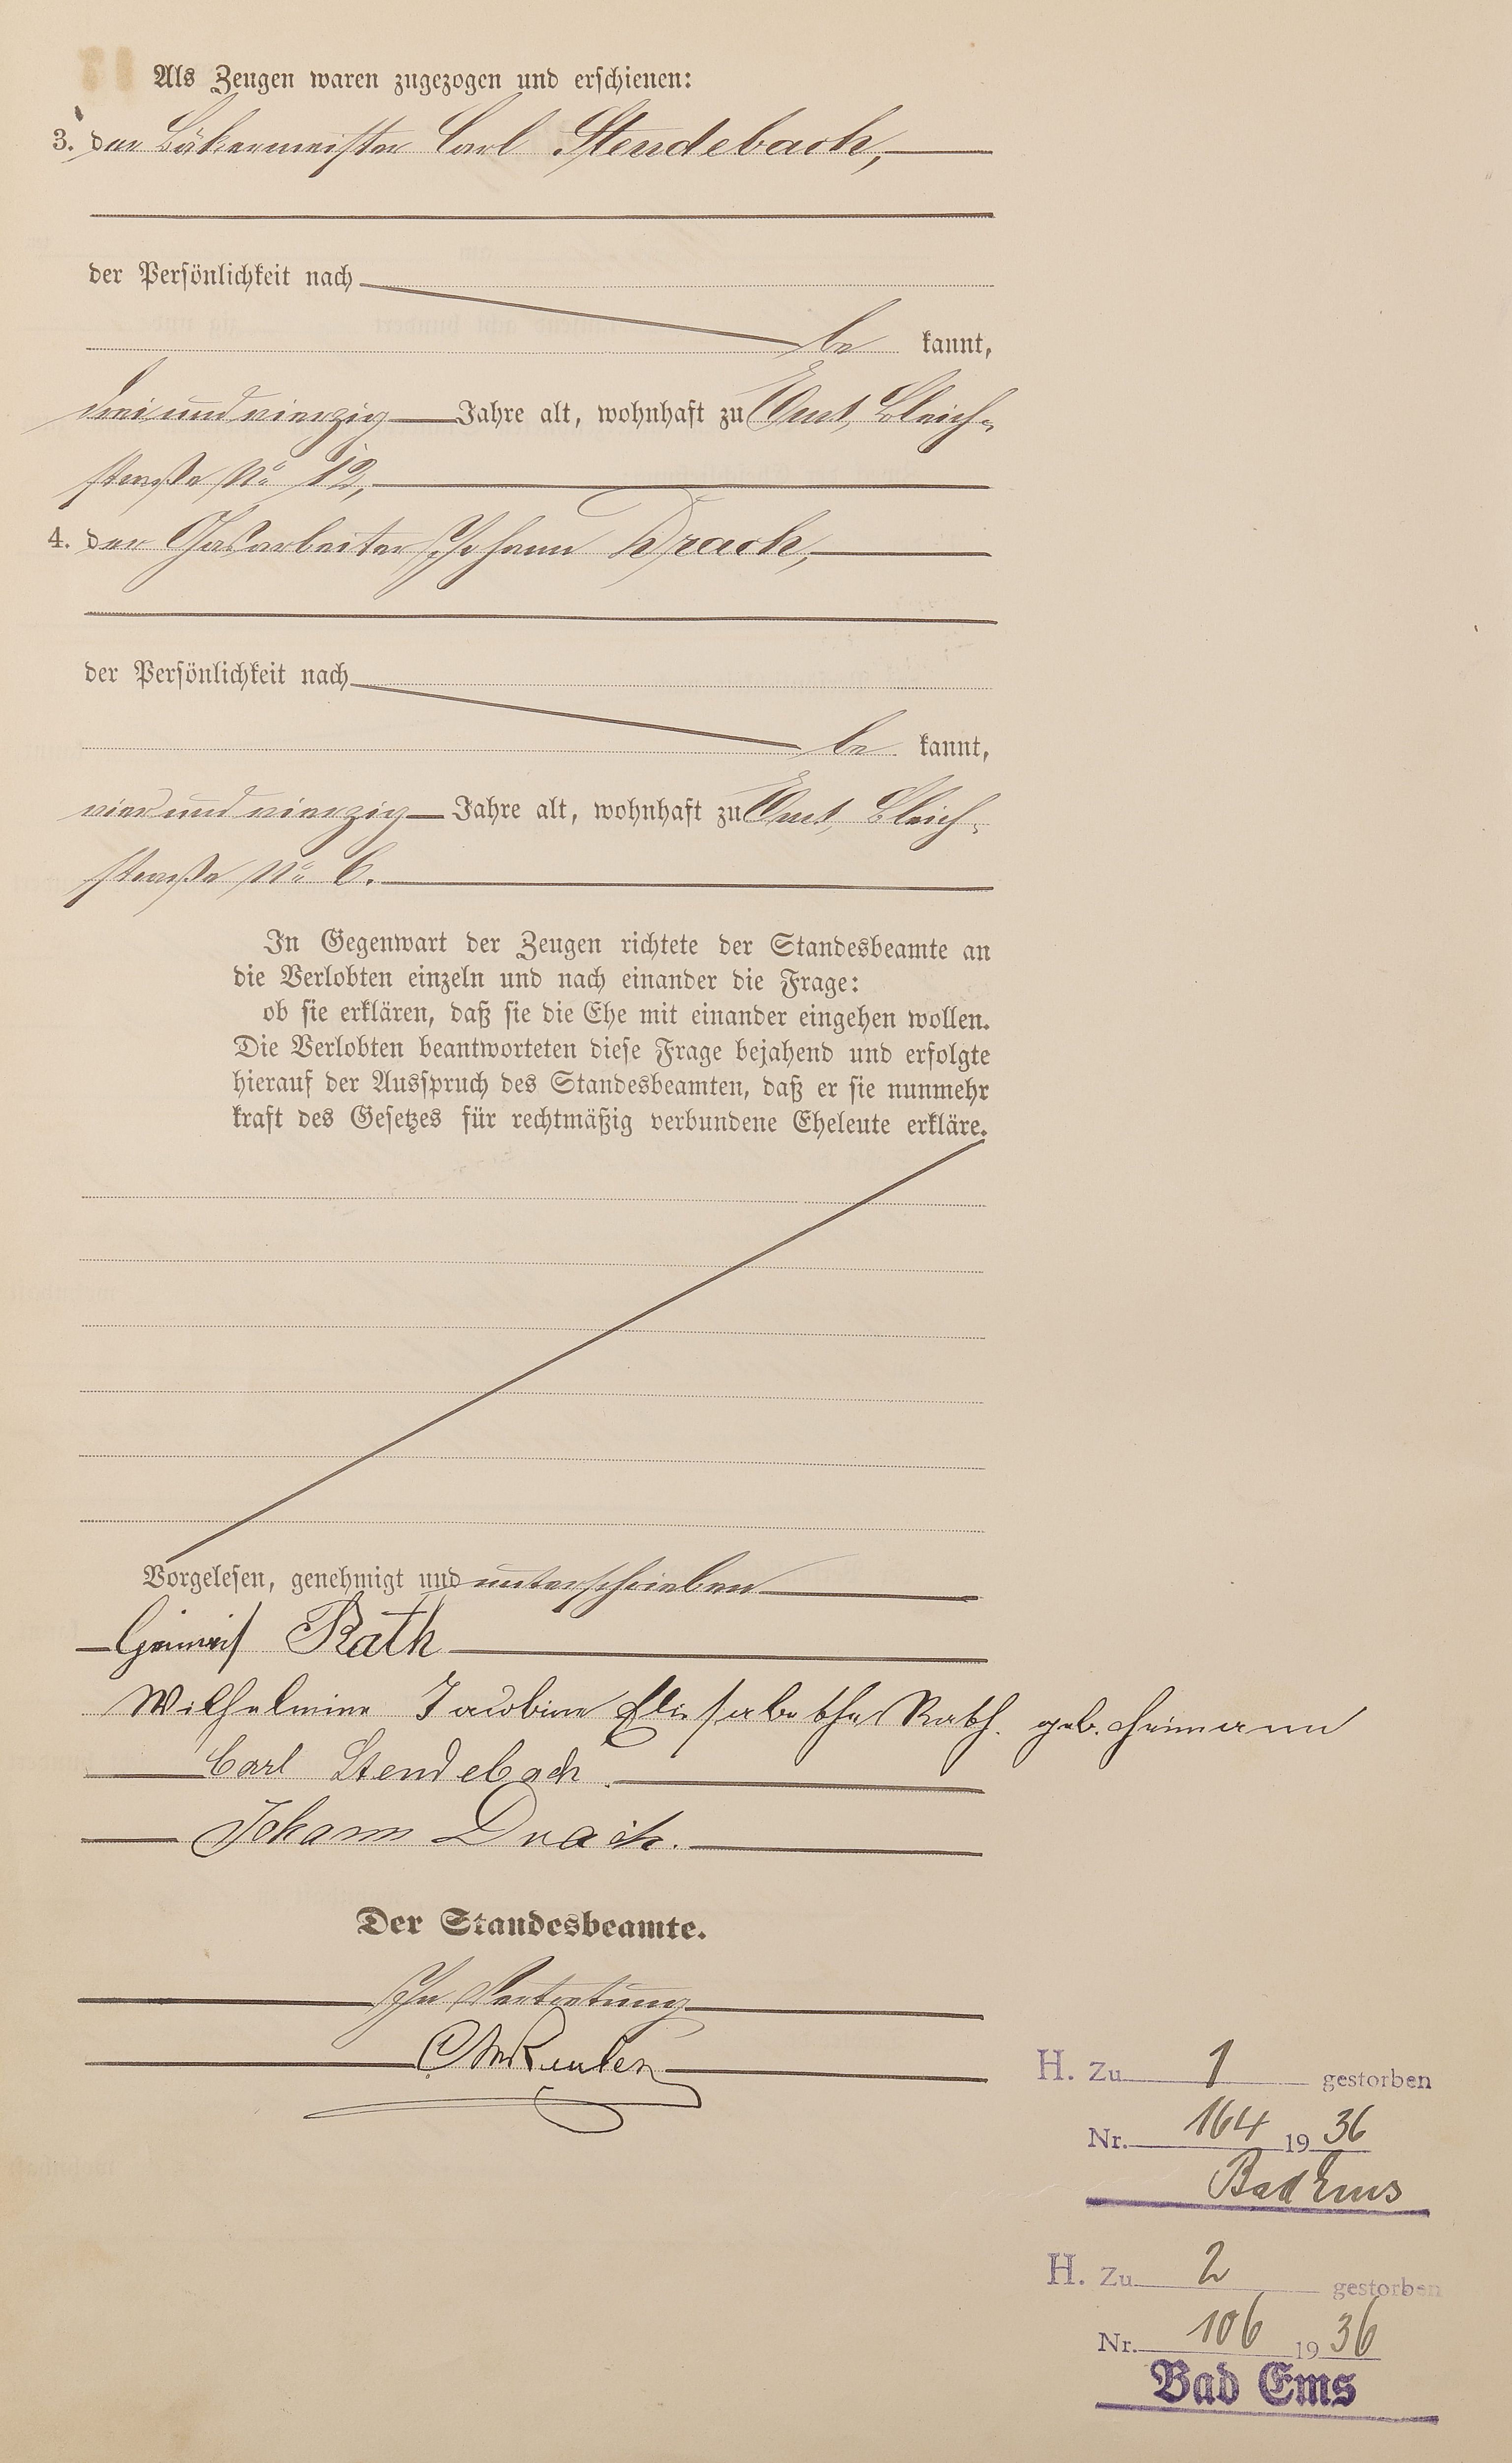 Als Zeugen waren zugezogen und erschienen:
3. der Bäkermeister Carl Stendebach,
der Persönlichkeit nach
be kannt,
drei und vierzig Jahre alt, wohnhaft zu Ems, Bleich-
straße No 12,
4. der Gasarbeiter Johann Drach,
der Persönlichkeit nach
be kannt,
vier und vierzig Jahre alt, wohnhaft zu Ems, Bleich-
straße No 6.
In Gegenwart der Zeugen richtete der Standesbeamte an
die Verlobten einzeln und nach einander die Frage:
ob sie erklären, daß sie die Ehe mit einander eingehen wollen.
Die Verlobten beantworteten diese Frage bejahend und erfolgte
hierauf der Ausspruch des Standesbeamten, daß er sie nunmehr
kraft des Gesetzes für rechtmäßig verbundene Eheleute erkläre.
Vorgelesen, genehmigt und unterschrieben
Heinrich Rath
Wilhelmine Jacobine Elisabethe Rath. geb. Heimann
Carl Stendebach.
Johann Drach.
Der Standesbeamte.
In Vertretung
H. Zu 1 gestorben
Nr. 164 1936
Bad Ems
H. Zu 2 gestorben
Nr. 106 1936
Bad Ems